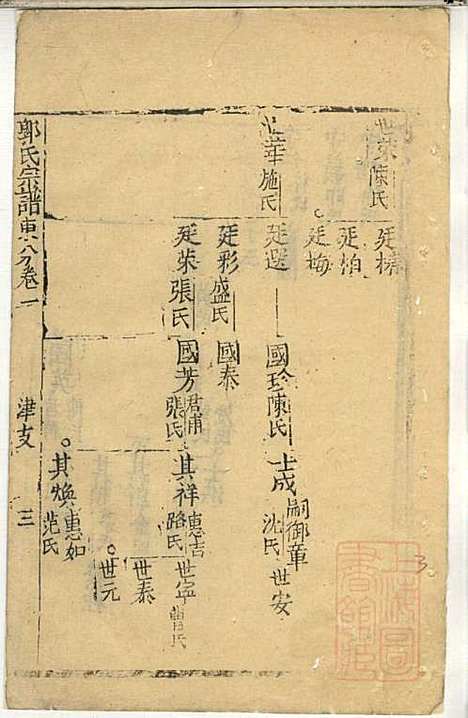 世榮陳氏
廷榜
廷柏
廷梅
世華施氏
廷選
國珍陳氏
士成嗣御章沈氏
世安
廷彩盛氏
國泰
廷榮張氏
國芳君甫張氏
其祥惠吉路氏
世寧曹氏
世泰
世元
其煥惠如范氏
鄭氏宗譜東八分卷一
津支
三